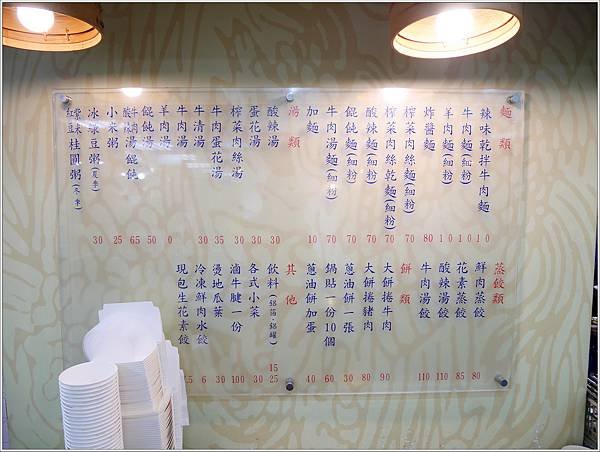 麵類
辣味乾拌牛肉麵 10
牛肉麵(細粉) 110
羊肉麵(細粉) 110
炸醬麵 80
榨菜肉絲麵(細粉) 70
榨菜肉絲乾麵(細粉) 70
酸辣麵(細粉) 70
餛飩麵(細粉) 70
牛肉湯麵(細粉) 70
加麵 10
湯類
酸辣湯 30
蛋花湯 30
榨菜肉絲湯 35
牛肉蛋花湯 30
牛清湯
牛肉湯
羊肉湯 0
餛飩湯 50
牛肉湯餛飩 65
酸辣湯餛飩
小米粥 25
冰綠豆粥(夏季) 30
紫米
紅豆
桂圓粥(冬季)
蒸餃類
鮮肉蒸餃 80
花素蒸餃 85
酸辣湯餃 110
牛肉湯餃 110
餅類
大餅捲牛肉 90
大餅捲豬肉 80
蔥油餅一張 30
鍋貼一份10個 60
蔥油餅加蛋 40
其他
飲料(鋁箔、鋁罐) 15 25
各式小菜 30
滷牛腱一份 100
燙地瓜葉 30
冷凍鮮肉水餃 6
現包生花素餃 .5